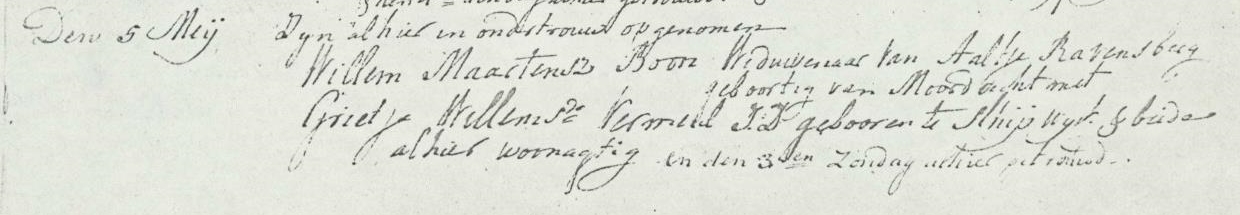 Den 5 Meij Zyn alhier in ondertrouw opgenomen
Willem Maartensz Boon Weduwenaar Van Aaltje Ravensberg
geboortig van Moordrecht met
Grietje Willemsde Vermeul J:D geboren te Sluipwyk & beide
alhier woonagtig en den 3den Zondag alhier getrouwd.